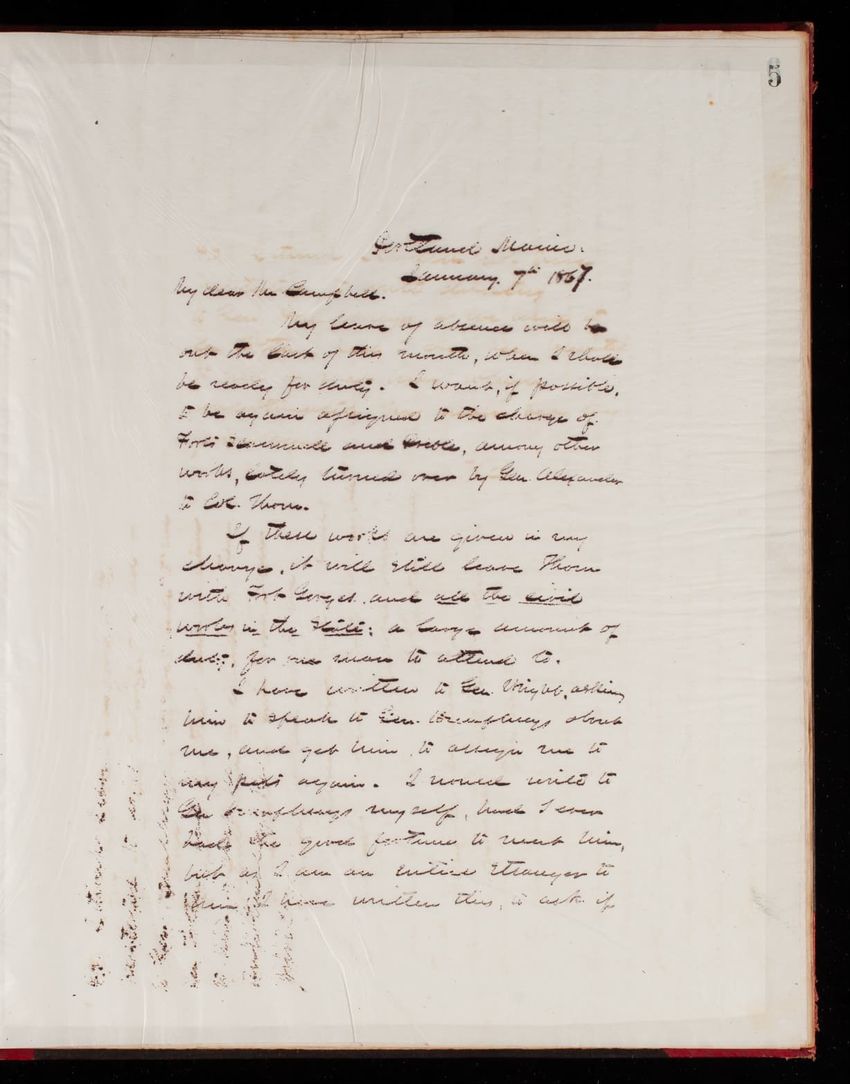 5
Portland Maine.
January. 7th 1867.
My dear Mr Campbell.
My leave of absence will be
out the last of this month, when I shall
be ready for duty. I want, if possible,
to be again assigned to the charge of
Forts Scammell and Preble, among other
works, lately turned over by Gen. Alexander
to Col. Thom.
If these works are given in my
charge, it will still leave Thom
with Fort Gorges. and all the civil
works in the State; a large amount of
duty, for one man to attend to.
I have written to Gen. Wright, asking
him to speak to Gen. Humphreys about
me, and get him to assign me to
my pets again. I would write to
Gen Humphreys myself, had I ever
had the good fortune to meet him,
but as I am an entire stranger to
him I have written this, to ask if